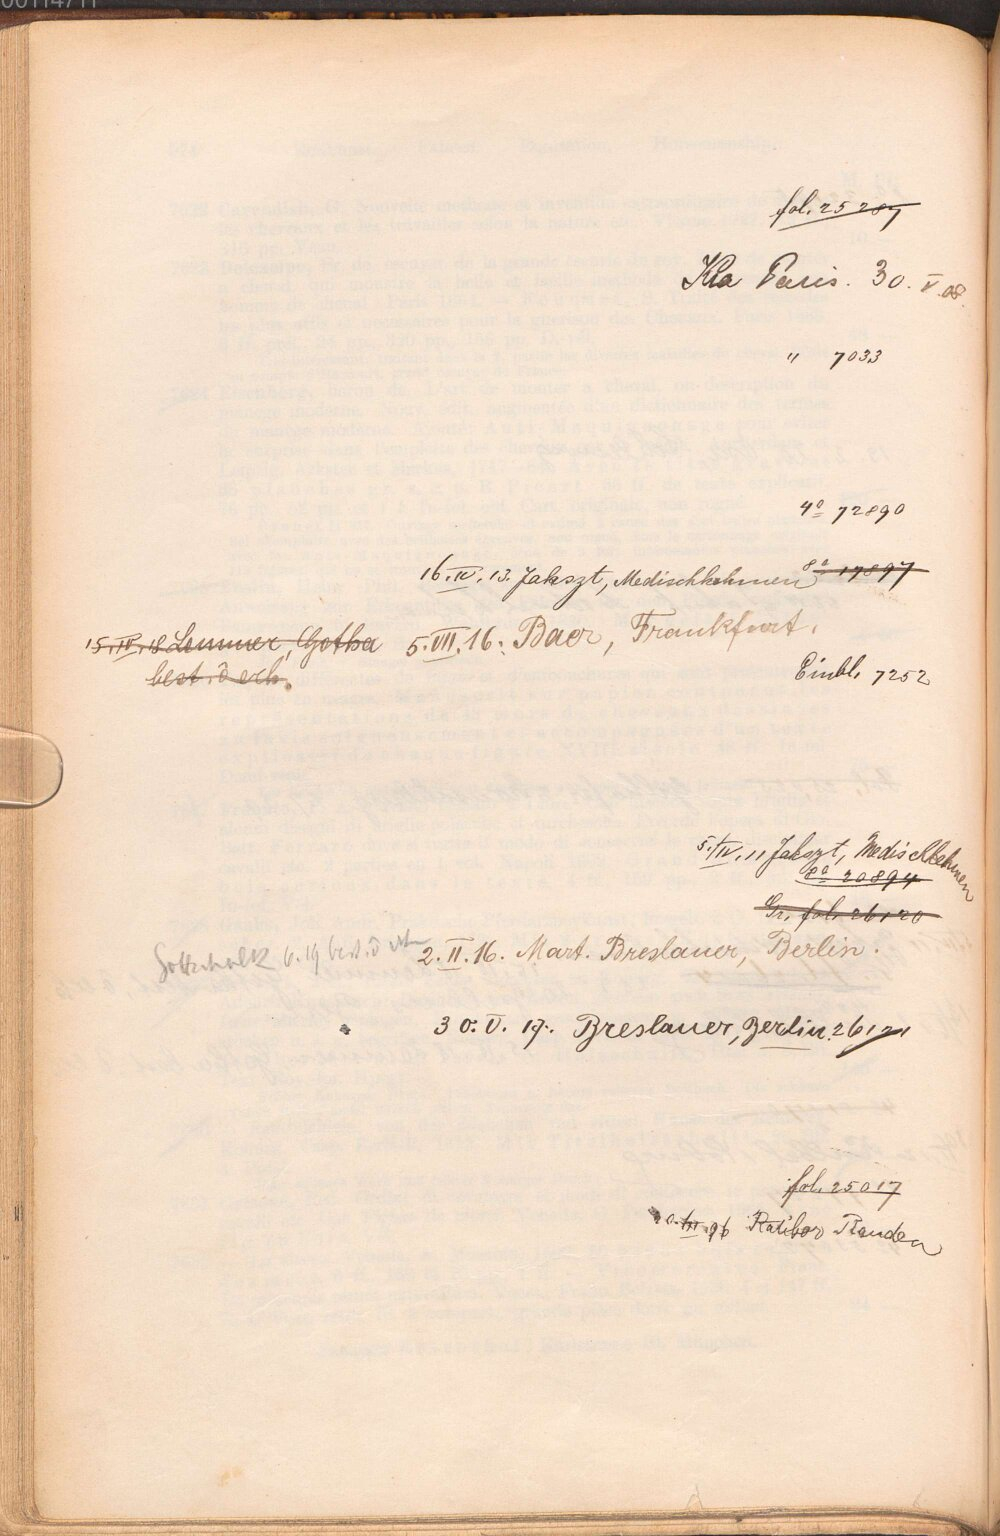 fol. 25 287
Kla Paris. 30. V. 08.
" 7033
4º 72890
8º 17897
16. IV. 13. Jakszt, Medischkehmen
15. IV. 18 Lemmer, Gotha 5. VII. 16. Baer, Frankfurt.
best. ō erh.
Einbl. 7252
5. IV. 11 Jakszt, Medischkehmen
8º 20894
Gr. fol. 26120
Gottschalk 6. 19 best. ō erh 2. II. 16. Mart. Breslauer, Berlin.
30. V. 17. Breslauer, Berlin. 26121
fol. 25017
96 Ratibor Rauden